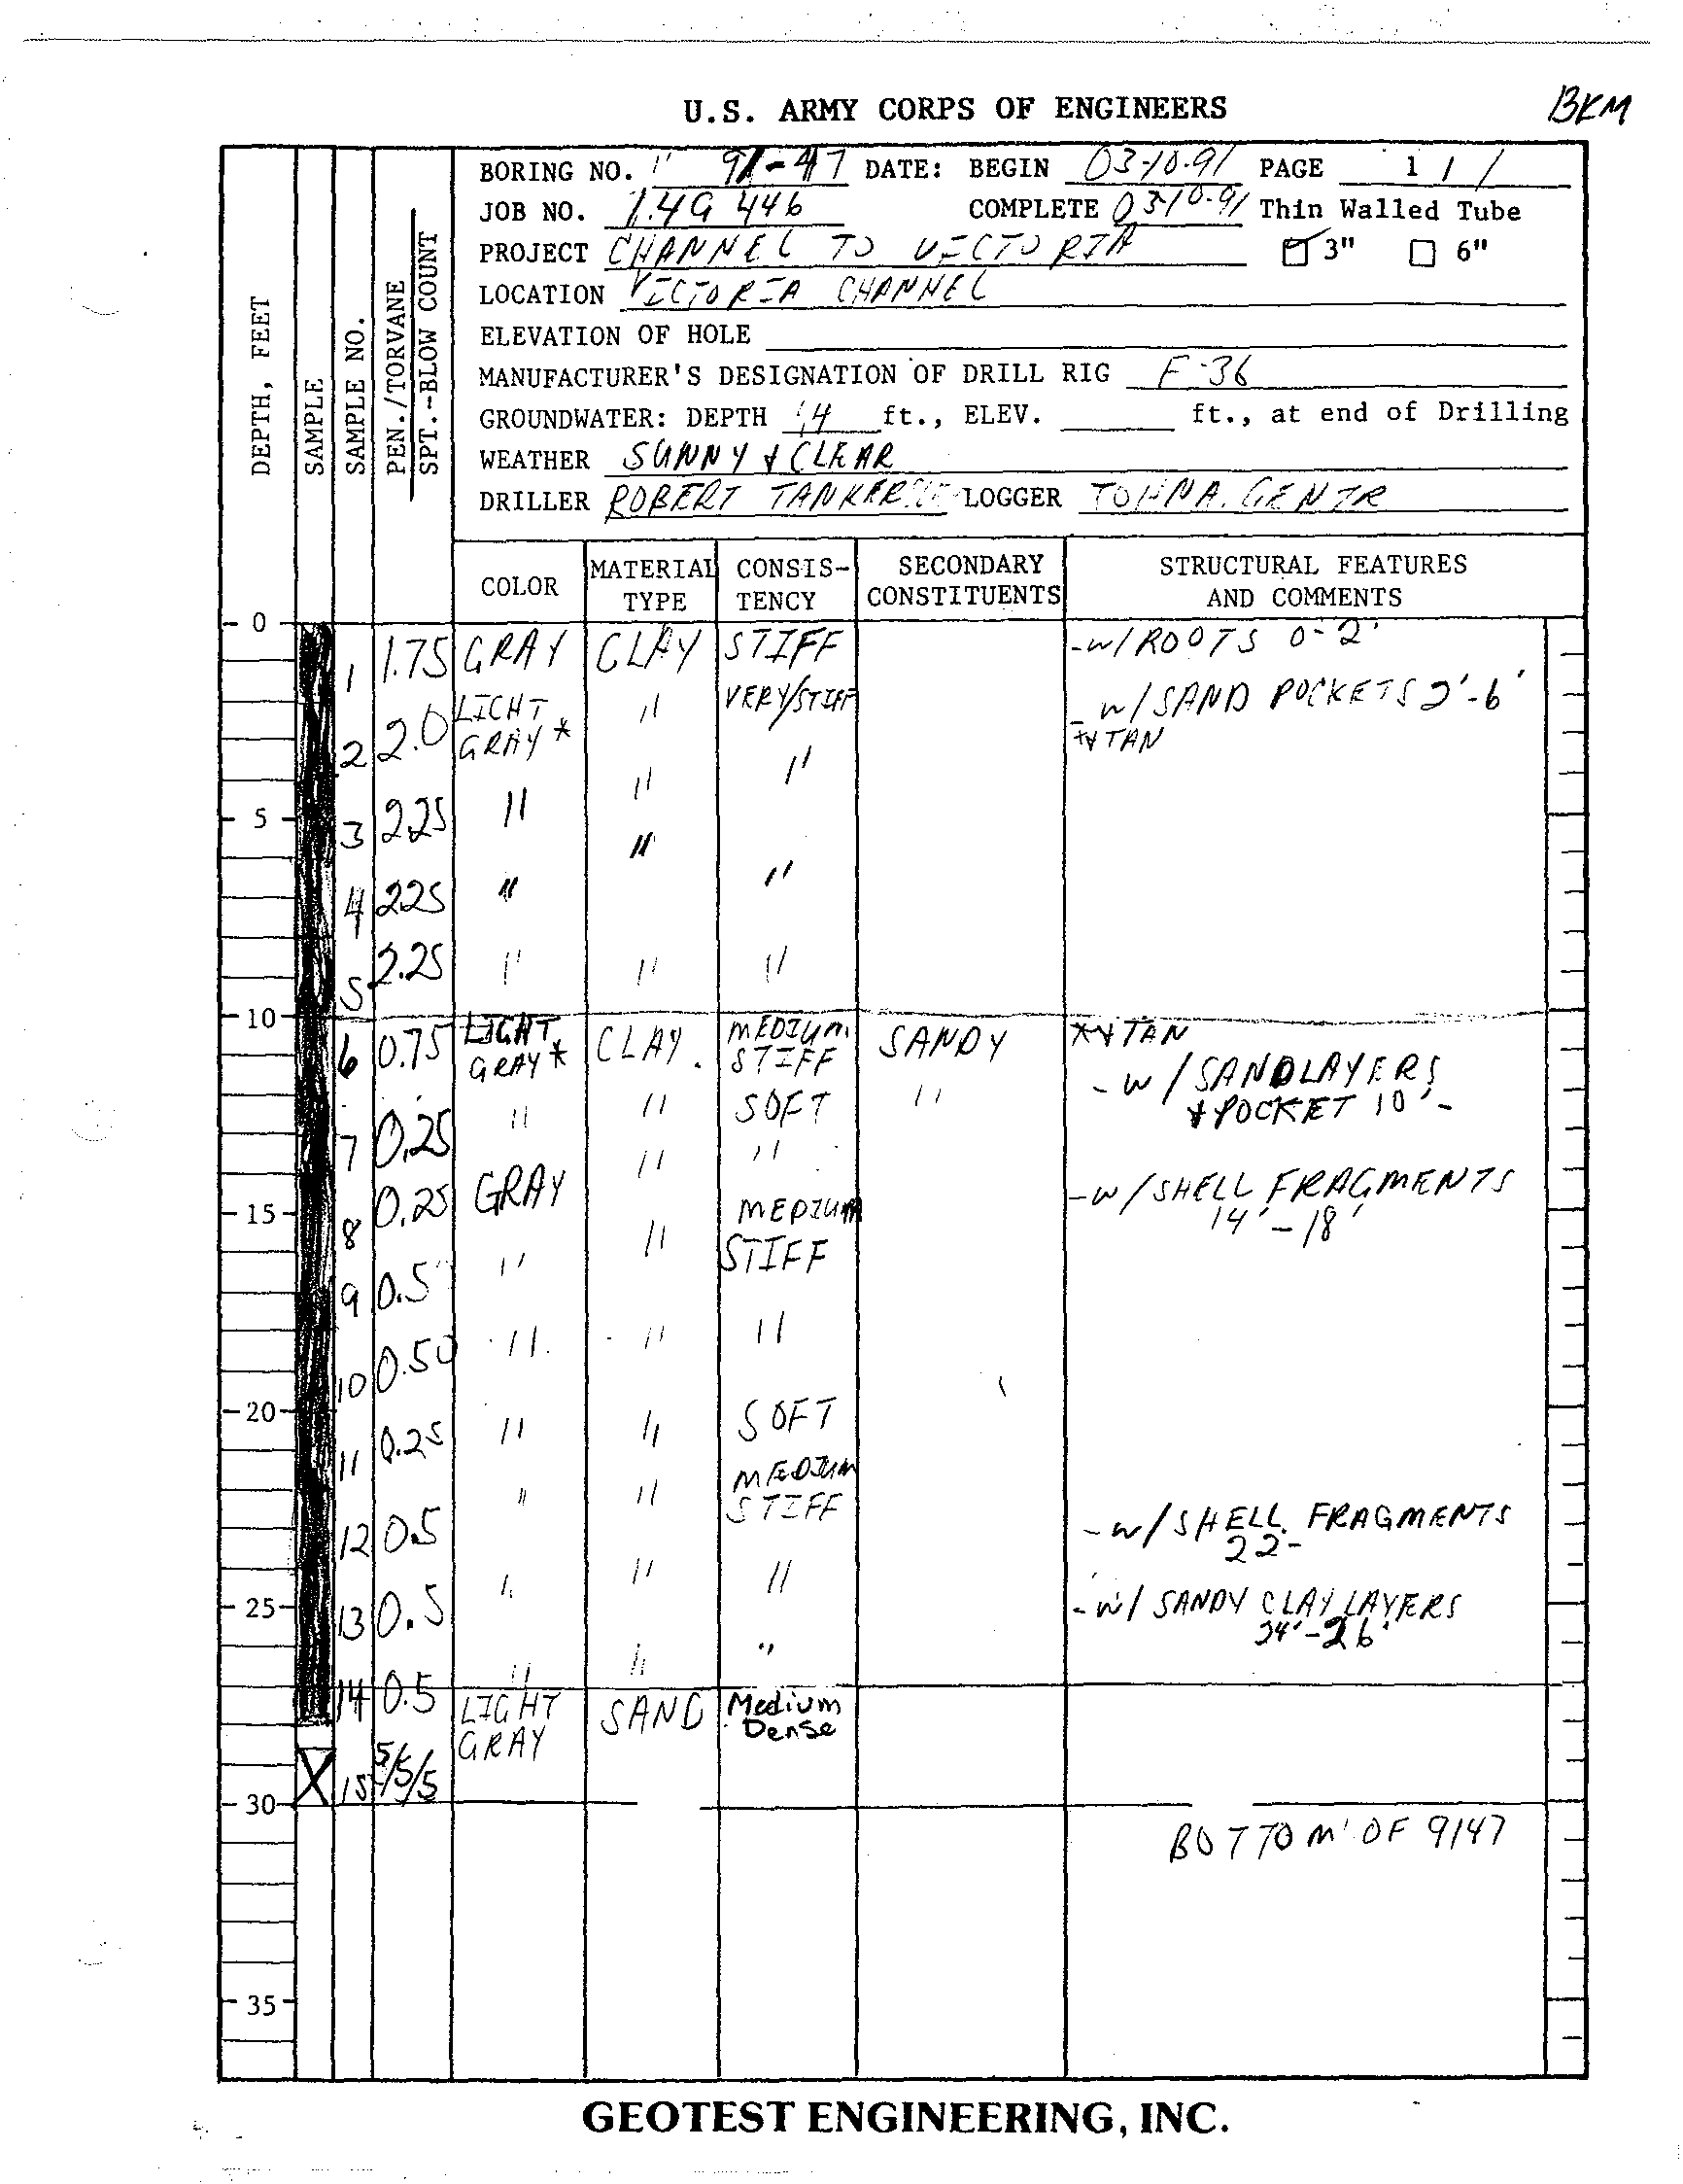 U.S. ARMY CORPS OF ENGINEERS
BKM
BORING NO. 91-47 DATE: BEGIN 03-10-91 PAGE 1 / 1
JOB NO. 1.4G 446 COMPLETE 03-10-91 Thin Walled Tube
PROJECT CHANNEL TO VICTORIA 3" 6"
LOCATION VICTORIA CHANNEL
ELEVATION OF HOLE
MANUFACTURER'S DESIGNATION OF DRILL RIG F-36
GROUNDWATER: DEPTH 14 ft., ELEV. ft., at end of Drilling
WEATHER SUNNY & CLEAR
DRILLER ROBERT LOGGER
DEPTH, FEET
SAMPLE
SAMPLE NO.
PEN./TORVANE
SPT.-BLOW COUNT
COLOR MATERIAL TYPE CONSIS-TENCY SECONDARY CONSTITUENTS STRUCTURAL FEATURES AND COMMENTS
0
1 1.75 GRAY CLAY STIFF -W/ROOTS 0-2'
2 2.0 LIGHT GRAY * " VERY/STIFF - W/SAND POCKETS 2'-6'
*& TAN
" "
5
3 2.25 " "
4 2.25 " "
5 2.25 " " "
10
6 0.75 LIGHT GRAY * CLAY. MEDIUM STIFF SANDY *& TAN
- W/SANDLAYERS
& POCKET 10'-
7 0.25 " " SOFT "
" "
8 0.25 GRAY -W/SHELL FRAGMENTS
14'-18'
15
" MEDIUM STIFF
9 0.5 "
10 0.50 " " "
20
11 0.25 " " SOFT
12 0.5 " " MEDIUM STIFF -W/SHELL FRAGMENTS
22-
13 0.5 " " " -W/ SANDY CLAY LAYERS
24'-26'
25
" " "
14 0.5 LIGHT GRAY SAND Medium Dense
X 15 5/5/5
30
BOTTOM OF 9147
35
GEOTEST ENGINEERING, INC.